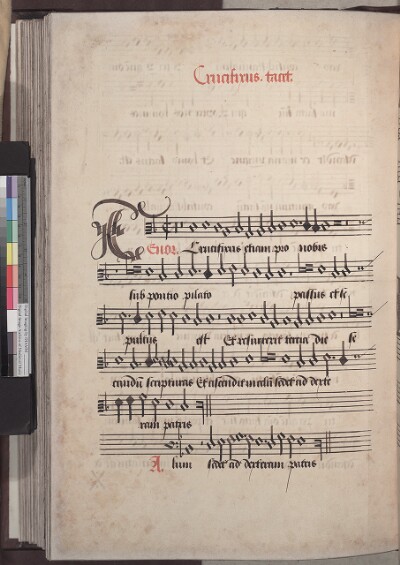 Crucifixus. tacet.
TENOR. Crucifixus etiam pro nobis
sub pontio pilato passus et se
pultus est Et resurrexit tercia die se
cundum scripturas Et ascendit in celum sedet ad dexte
ram patris
A lium sedet ad dexteram patris